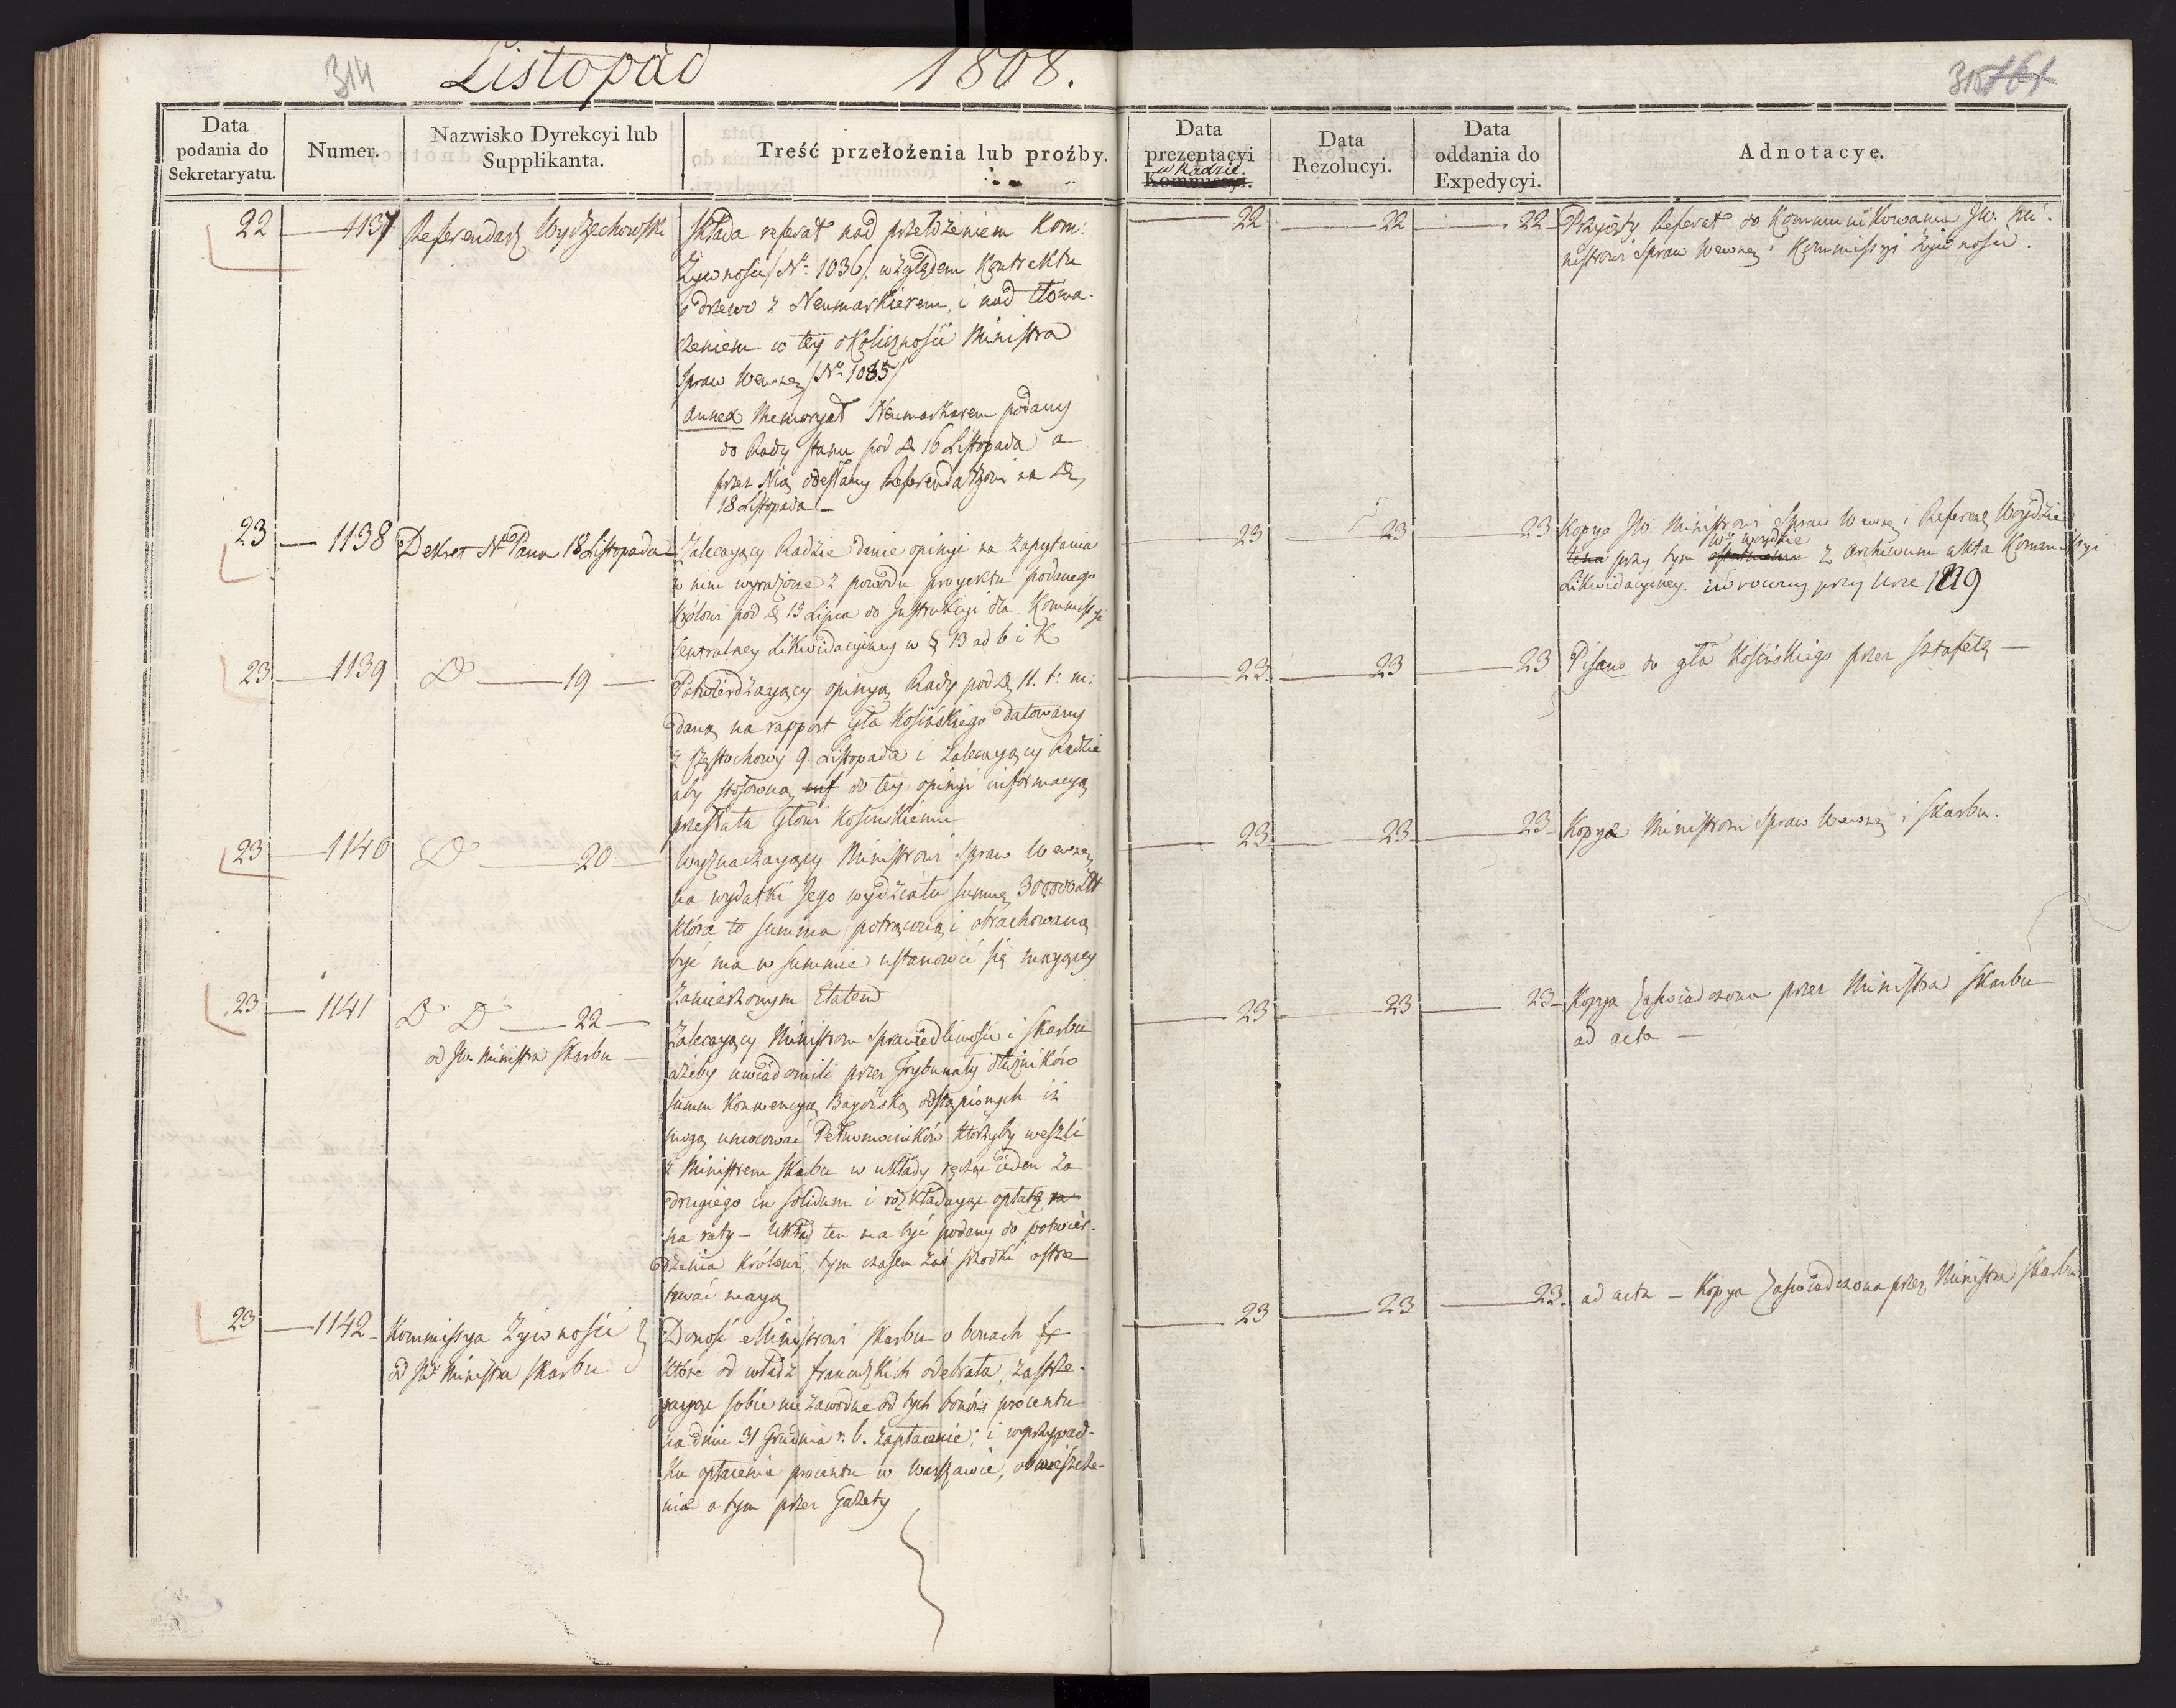 314 Listopad 1808. 315 161
Data podania do Sekretaryatu.
Numer.
Nazwisko Dyrekcyi lub Supplikanta.
Treść przełożenia lub proźby.
Data prezentacyi w Radzie. Kommissyi.
Data Rezolucyi.
Data oddania do Expedycyi.
Adnotacye.
22 — 1137 Referendarz Wyczechowski
Składa referat nad przełożeniem Kom:
Żywności /N° 1036/. względem Kontraktu
o drzewo z Neumarkierem, i nad tłoma-
czeniem w tey okoliczności Ministra
Spraw Wewnę /N° 1085/
Annex Memoryał Neumarkerem podany
do Rady Stanu pod D. 16 Listopada a
przez Nią odesłany Referendarzowi na D.
18 Listopada —
22 — 22 — 22 Przyięty Referat do Kommunikowania JW. Mi-
nistrowi Spraw Wewnę i Kommissyi Żywności.
23 — 1138 Dekret N° Pana 18 Listopada
Zalecaiący Radzie danie opinyi na zapytania
w nim wyrażone z powodu proyektu podanego
Królowi pod D. 15 Lipca do Instrukcyi dla Kommissyi
Centralney Likwidacyiney w § 13 ad b i K
23 — 23 — 23 Kopya JW. Ministrowi Spraw Wewnę i Referen
przy tym z Archiwum akta Kommissyi
Likwidacyiney. przy Nrze 1129
23 — 1139 D — 19 —
Potwierdzaiący opinyą Rady pod D. 11. t: m:
daną na rapport Gła Kosińskiego datowany
z Częstochowy 9. Listopada i zalecaiący Radzie
aby stosowną inf do tey opinyi informacyą
przesłała Głowi Kosińskiemu
23 — 23 — 23 Pisano do gła Kosińskiego przez sztafetę —
23 — 1140 D — 20 —
Wyznaczaiący Ministrowi Spraw Wewnę
na wydatki Jego wydziału summę
która to summa potrącona i obrachowana
być ma w summie ustanowić się maiącey
Zamierzonym Etatem
23 — 23 — 23 Kopya Ministrom Spraw Wewnę i Skarbu.
23 — 1141 D D — 22 —
od JW. Ministra Skarbu —
Zalecaiący Ministrom Sprawiedliwości i Skarbu
ażeby uwiadomili przez Trybunały dłużników
summ Konwencyą Bayońską odstąpionych iż
mogą umocować Pełnomocników którzyby weszli
z Ministrem Skarbu w układy ręcząc ieden za
drugiego in solidum i rozkładaiąc opłatę na
na raty — Układ ten ma być podany do potwier-
dzenia Królowi, tym czasem zaś środki ostre
trwać maią
23 — 23 — 23 Kopya Zaświadczona przez Ministra Skarbu
ad acta —
23 — 1142 Kommissya Żywności
od JW Ministra Skarbu
Donosi Ministrowi Skarbu o bonach fr
które od władz francuzkich odebrała, zastrze-
gaiąc sobie niezawodne od tych bonów procentu
na dniu 31 Grudnia r. b. zapłacenie; i w przypad-
ku opłacenia procentu w Warszawie, obwieszcze-
nie o tym przez Gazety
23 — 23 — 23. ad acta — Kopya Zaświadczona przez Ministra Skarbu